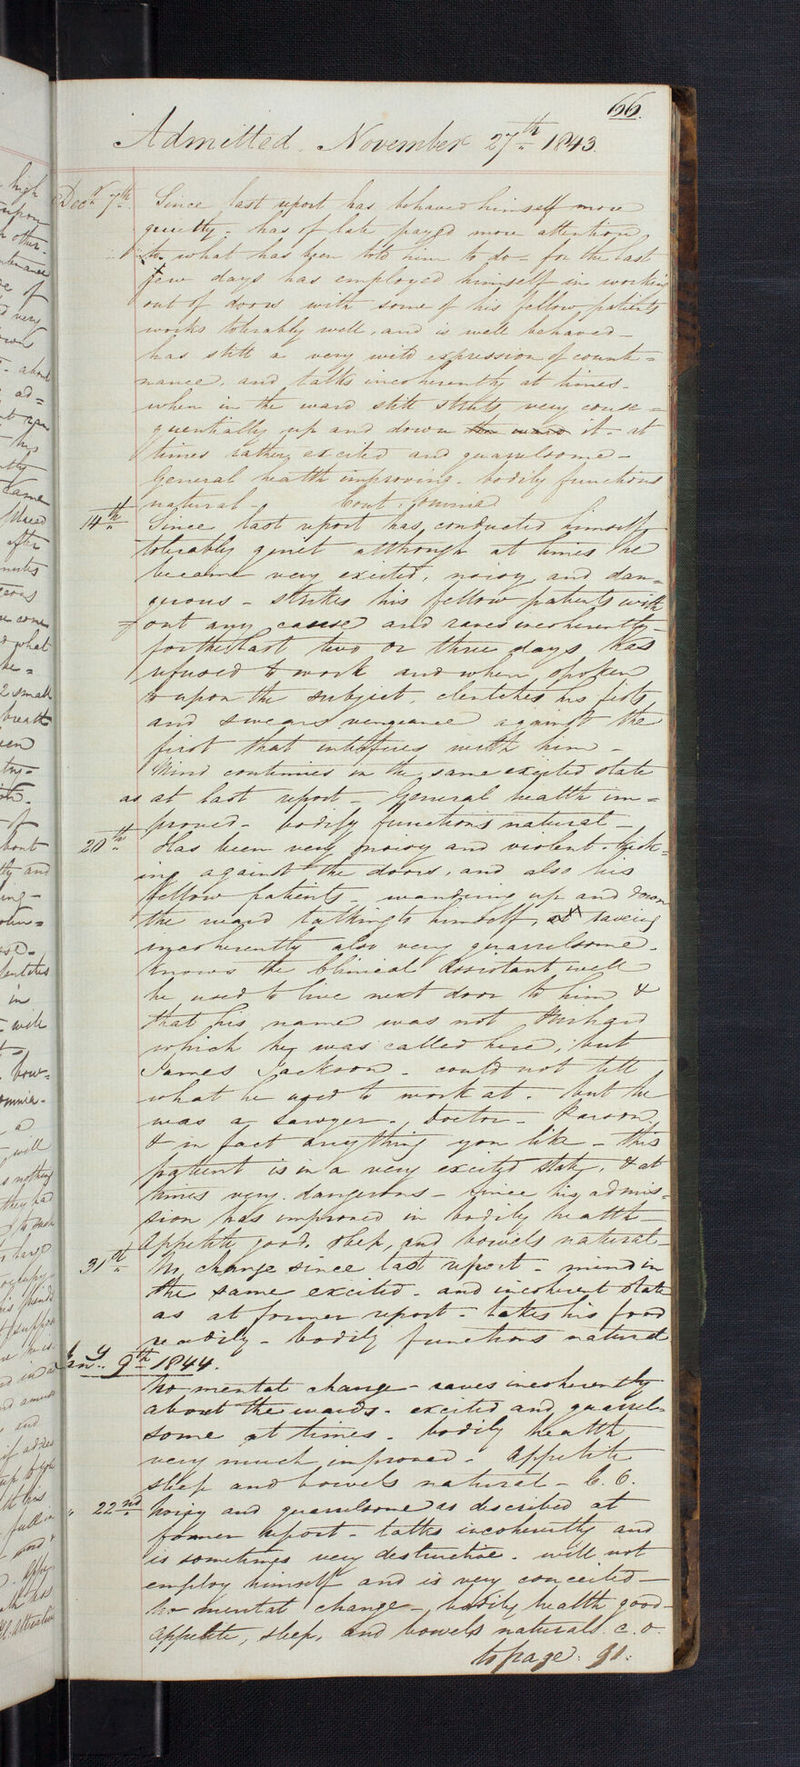 66.
Admitted November 27th 1843.
Decr 7th. Since last report has behaved himself more
quietly - has of late payed more attention
to what has been told him to do - for the last
few days has employed himself in working
out of doors with some of his fellow patients
works tolerably well, and is well behaved -
has still a very wild expression of count=
nance, and talks incoherently at times -
when in the ward still struts very conse=
quentially up and down the ward it - at
times rather excited and quarrelsome -
General health improving - bodily functions
natural - Cont. omnia
14th Since last report has conducted himself
tolerably quiet although at times he
became very excited, noisy and dan=
gerous - strikes his fellow patients with
out any cause and raves incoherently -
for the last two or three days has
refused to work and when spoken
to upon the subject, clentches his fists
and swears vengeance against the
first that interferes with him -
Mind continues in the same excited state
as at last report - General health im=
proved - bodily functions natural -
20th Has been very noisy and violent - kick=
ing against the doors, and also his
fellow patients - wandering up and down
the ward talking to himself, & raveing
incoherently also very quarrelsome -
knows the Clinical Assistant well
he used to live next door to him &
that his name was not
which he was called here, but
James Jackson - could not tell
what he used to work at - but he
was a Sawyer - Doctor - Parson,
& in fact anything you like - this
patient is in a very excited state, & at
times very dangerous - since his admis=
sion has improved in bodily health -
Appetite good, sleep, and bowels natural -
31st No change since last report - mind in
the same excited - and incoherent state
as at former report - takes his food
readily - bodily functions natural
Jany 9th 1844.
No mental change - raves incoherently
about the wards - excited and quarrel=
some at times - bodily health
very much improved - appetite
sleep and bowels natural - C. O.
" 22nd Noisy and quarrelsome as described at
former report - talks incoherently and
is sometimes very destructive - will not
employ himself and is very conceited -
No mental change - bodily health good -
appetite, sleep, and bowels natural. c. o.
to page: 91: